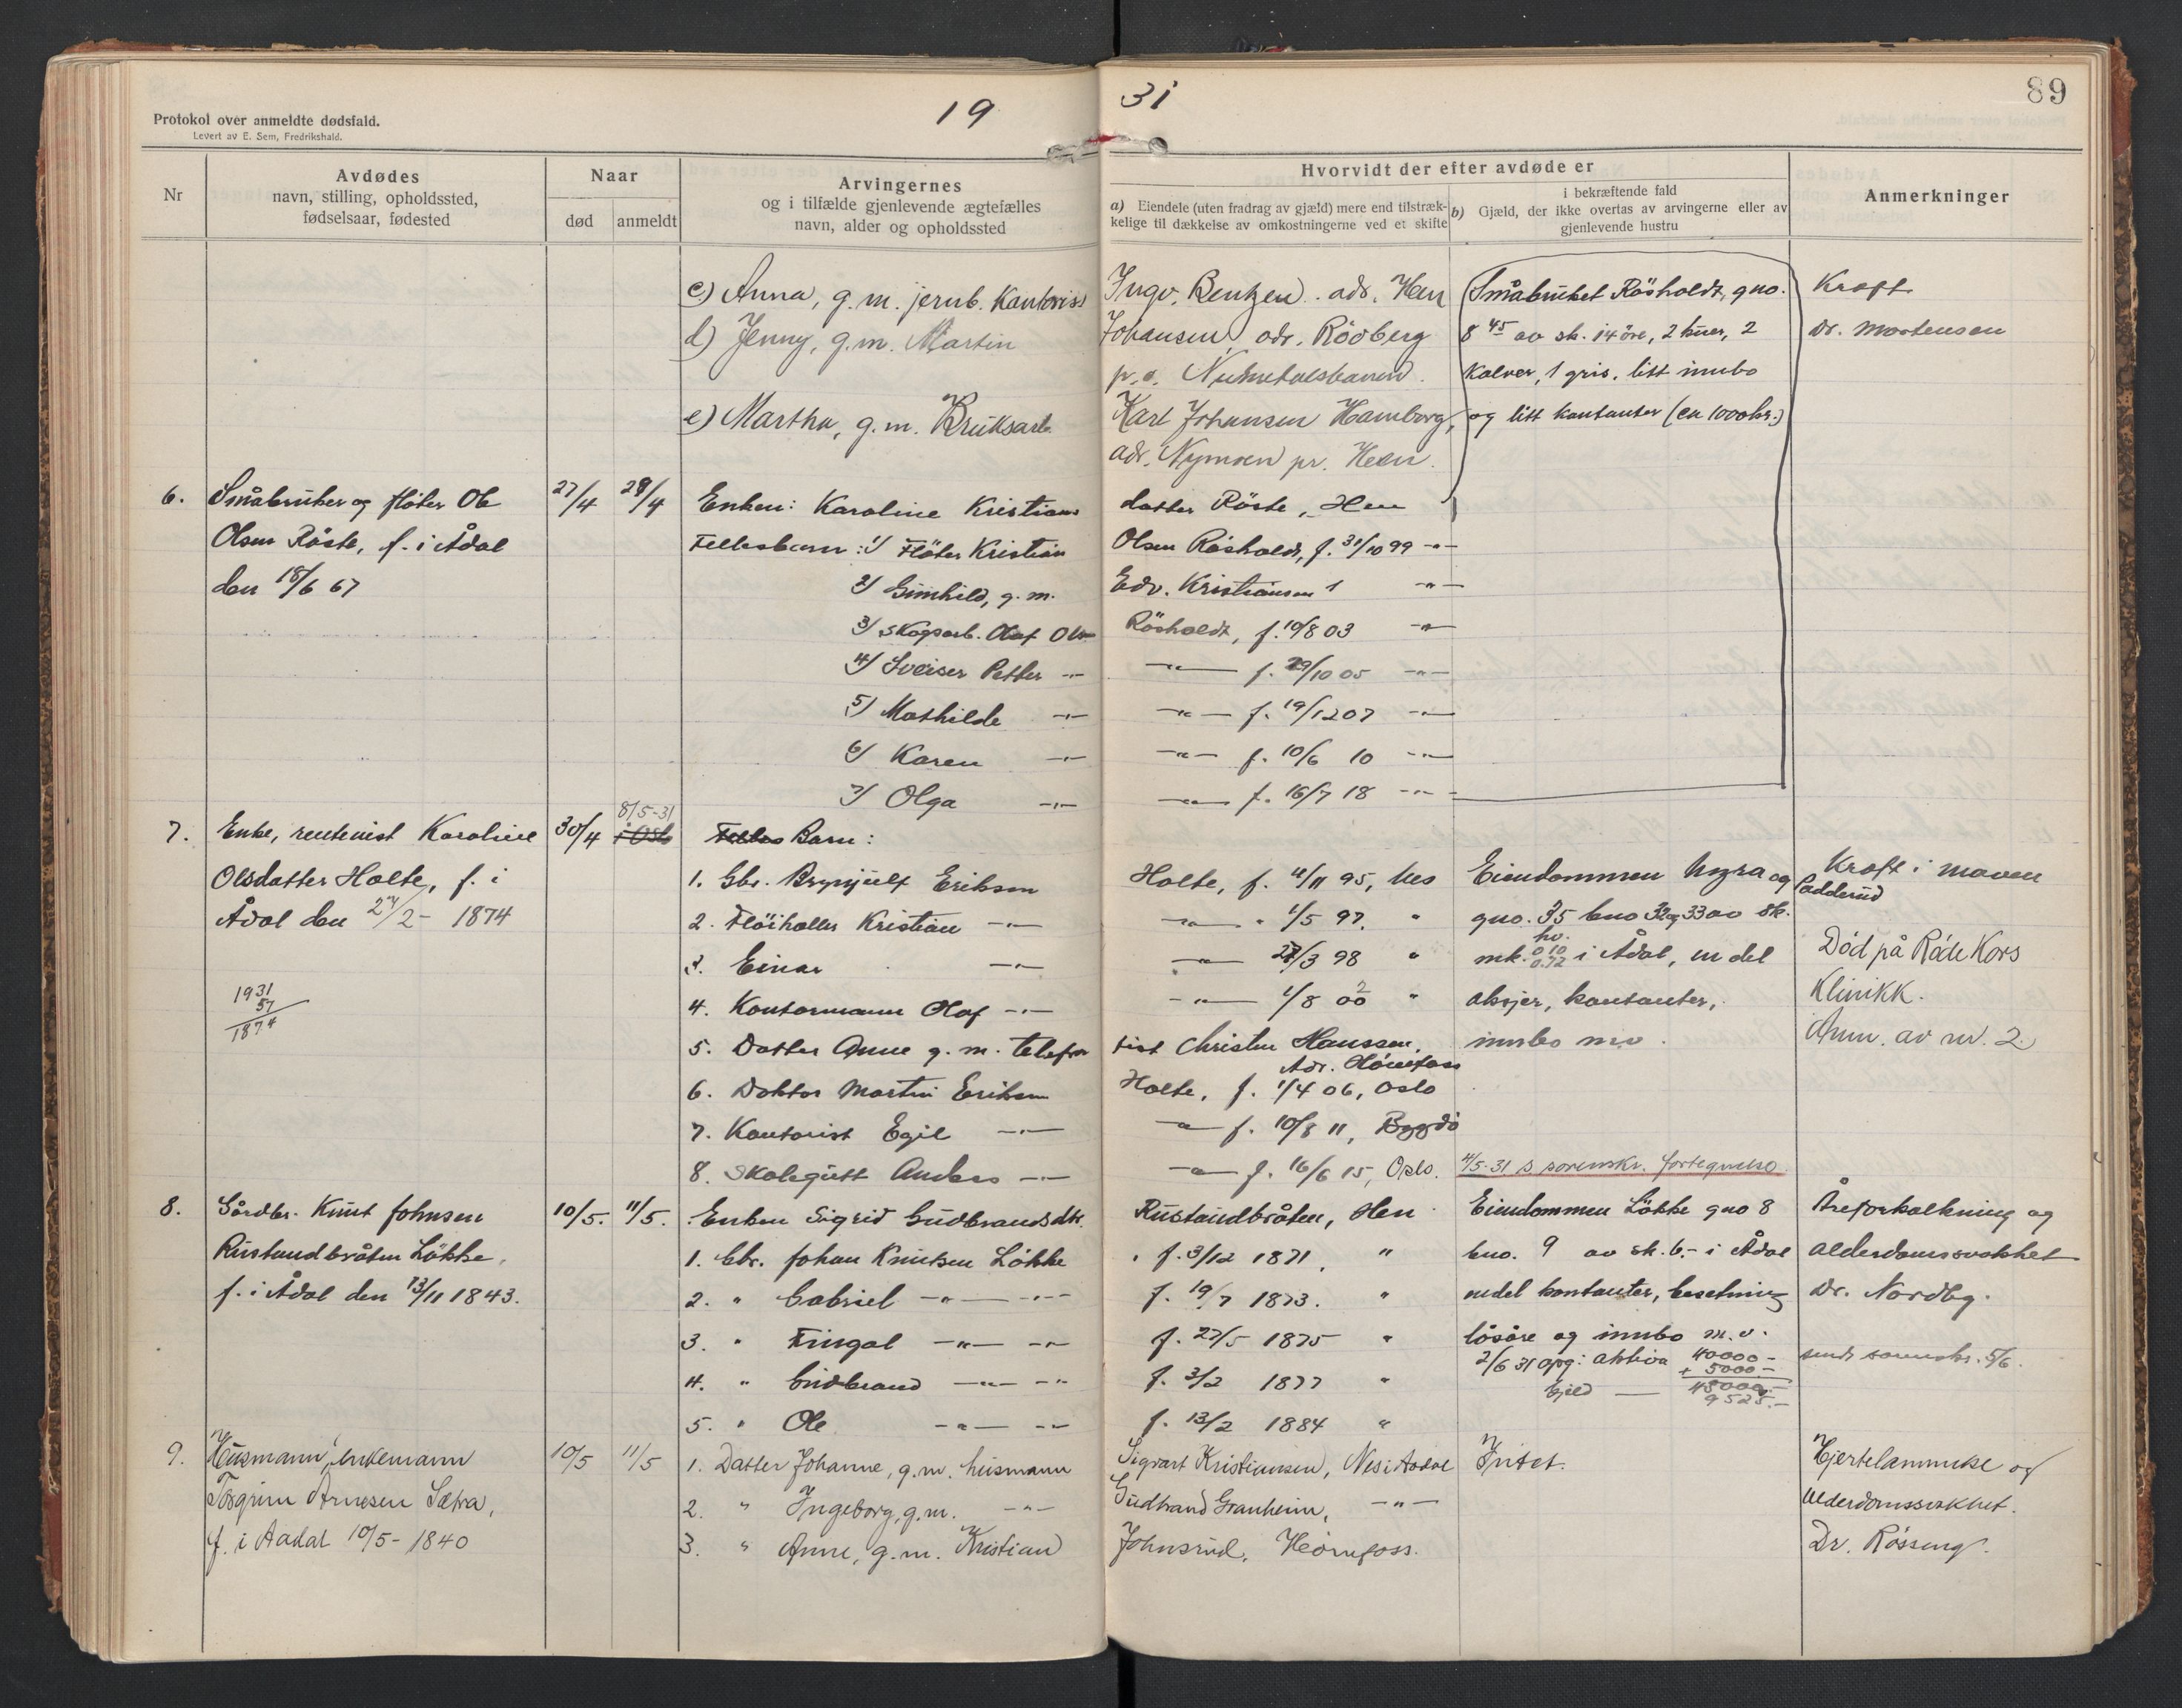 Protokol over anmeldte dødsfald.
Levert av E. Sem, Fredrikshald.
19
31
89
Nr
Avdødes
navn, stilling, opholdssted,
fødselsaar, fødested
Naar
død
anmeldt
Arvingernes
og i tilfælde gjenlevende ægtefælles
navn, alder og opholdssted
Hvorvidt der efter avdøde er
a) Eiendele (uten fradrag av gjæld) mere end tilstræk-
kelige til dækkelse av omkostningerne ved et skifte
i bekræftende fald
b) Gjæld, der ikke overtas av arvingerne eller av
gjenlevende hustru
Anmerkninger
c) Anna, g.m. jernb. Kontorist Ingv. Bentzen. adr. Hen
d) Jenny, g.m. Martin Johansen, adr. Rödberg
p.o. Numedalsbanen.
e) Martha, g.m. Bruksarb. Karl Johansen Hamborg,
adr. Nymoen pr. Heen.
Småbruket Rösholdt, gno.
8 45 av sk. 14 öre, 2 kuer, 2
kalver, 1 gris, litt innbo
og litt kontanter (ca 1000 kr.)
Kraft.
Dr. Mortensen
6. Småbruker og fløter Ole
Olsen Röste, f. i Ådal
den 18/6 67
27/4 28/4
Enken: Karoline Kristians datter Röste, Hen
Fellesbarn: 1) Fløter Kristian Olsen Rösholdt, f. 31/10 99 -"-
2) Gunhild, g.m. Edv. Kristiansen -"-
3) Skogsarb. Olaf Olsen Rösholdt, f. 10/8 03 -"-
4) Sveiser Petter -"- -"- f. 29/10 05 -"-
5) Mathilde -"- -"- f. 19/12 07 -"-
6) Karen -"- -"- f. 10/6 10 -"-
7) Olga -"- -"- f. 16/7 18 -"-
7. Enke, rentenist Karoline
Olsdatter Holte, f. i
Ådal den 24/2 - 1874
1931
57
1874
30/4 8/5-31
i Oslo
Felles Barn:
1. Gbr. Brynjulf Eriksen Holte, f. 4/11 95, Nes
2. Fløiholler Kristian -"- -"- " 1/5 97. "
3. Einar -"- -"- 27/3 98 "
4. Kontormann Olaf -"- -"- 1/8 00 "
5. Datter Anne g.m. telefonist Christen Hanssen,
Adr. Hönefoss
6. Doktor Martin Eriksen Holte, f. 1/4 06, Oslo
7. Kontorist Egil -"- -"- f. 10/8 11, Bygdö
8. Skolegutt Anders -"- -"- f. 16/6 15, Oslo.
Eiendommen og
gno. 35 bno 32 og 33 av sk.
hv.
mk. 0.10 0.72 i Ådal, en del
aksjer, kontanter,
innbo mv.
4/5-31 s sorenskr. fortegnelse
Kraft i maven
Død på Röde Kors
Klinikk.
Anm. av nr. 2.
8. Gårdbr. Knut Johnsen
Rustandbråten Løkke,
f. i Ådal den 13/11 1843.
10/5. 11/5.
Enken Sigrid Gudbrandsdtr. Rustandbråten, Hen
1. Gbr. Johan Knutsen Løkke f. 3/12 1871, "
2. " Gabriel -"- -"- f. 19/7 1873. "
3. " Fingal -"- -"- f. 27/5 1875 "
4. " Gudbrand -"- -"- f. 3/2 1877 "
5. " Ole -"- -"- f. 13/2 1884 "
Eiendommen Løkke gno 8
bno. 9 av sk. 6.- i Ådal
endel kontanter, besetning
lösöre og innbo m.v.
2/6 31 opg: aktiva 40000 -
+ 5000 -
45000.-
Gjeld — 9525.-
Åreforkalkning og
alderdomssvakhet
Dr. Nordbg.
sendt sorenskr. 5/6.
9. Husmann, enkemann
Torgrim Arnesen Sætra,
f. i Aadal 10/5 - 1840
10/5 11/5
1. Datter Johanne, g.m. husmann Sigvart Kristiansen, Nes i Aadal
2. " Ingeborg, g.m. -"- Gudbrand Granheim, -"-
3. " Anne, g.m. Kristian Johnsrud, Hönefoss.
Intet.
Hjertelammelse og
Alderdomssvakhet.
Dr. Rösseng.